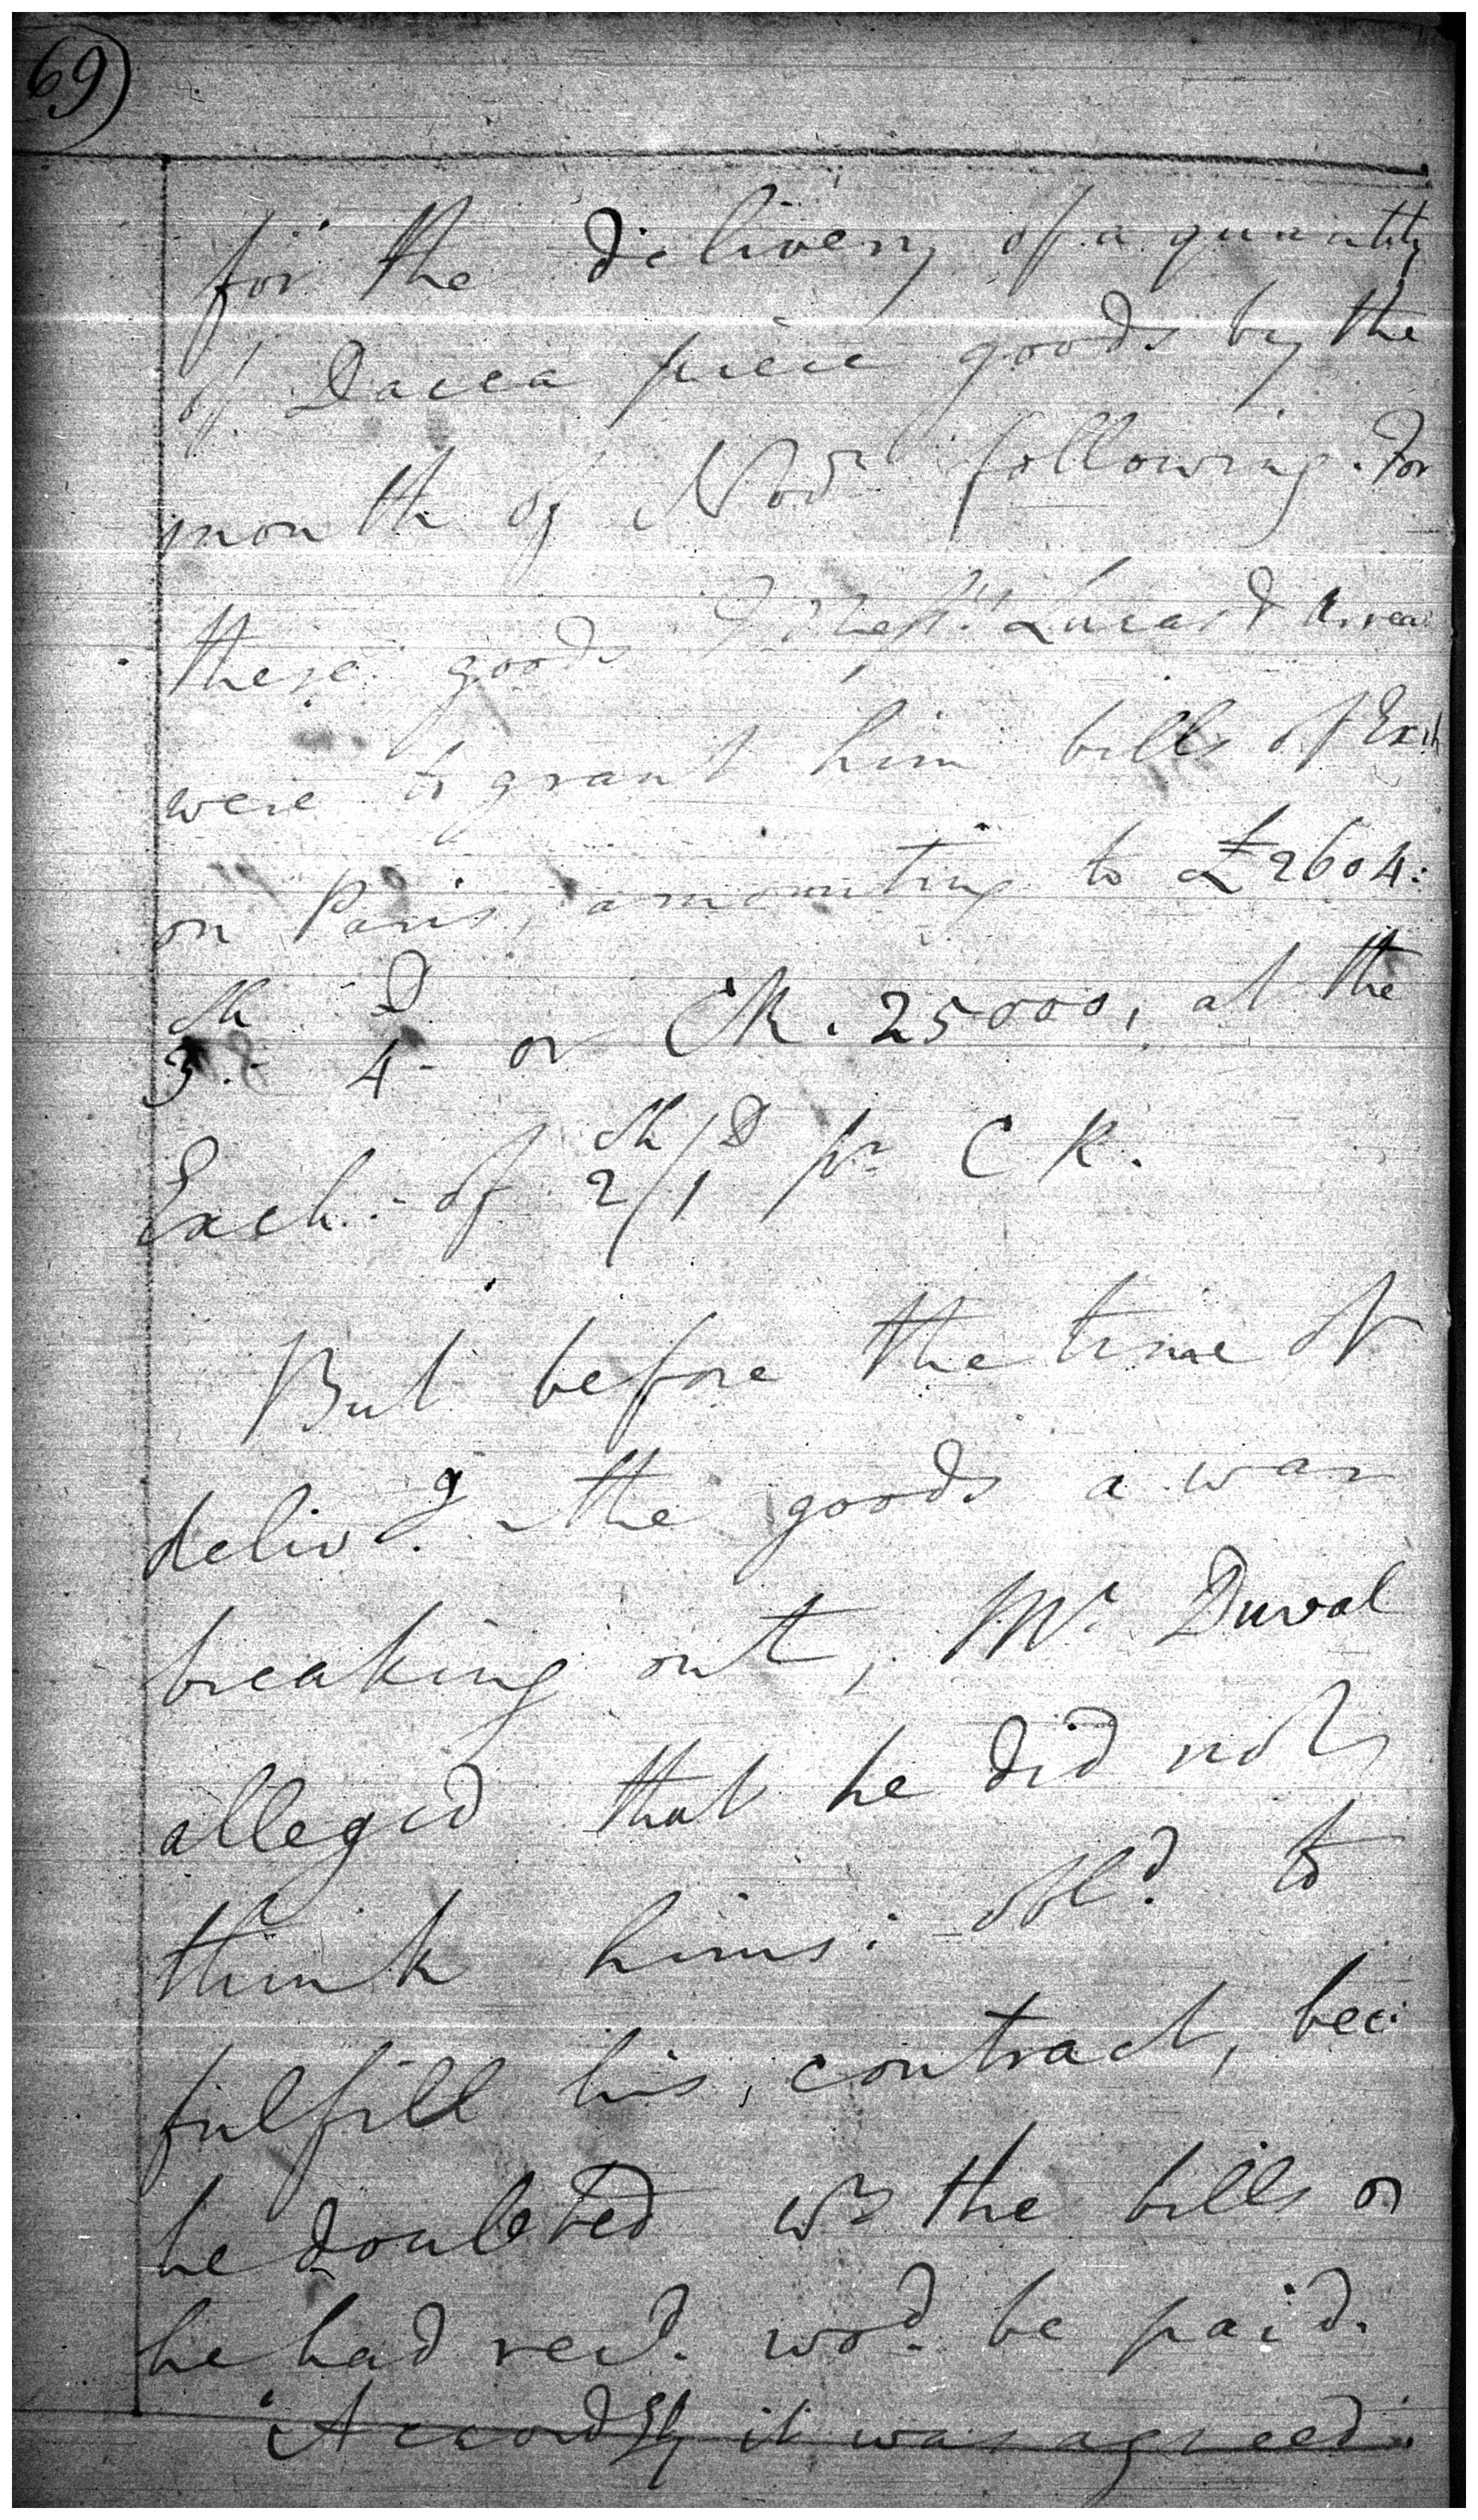 69)
for the delivery of a quantity
of Dacca piece goods by the
month of Novr following. For
these goods Messrs Lucas &
were to grant him bills of Exch
on Paris, amounting to £2604:
Sh D
3.- 4- or CR. 25000, at the
Sh D
Exch. of 2/1 pr CR.
But before the time of
delivg. the goods a war
breaking out, Mr Duval
alleged that he did not
think hims: obld. to
fulfill his contract, bec:
he doubted wr the bills
he had recd. wod. be paid.
Accordgly it was agreed.